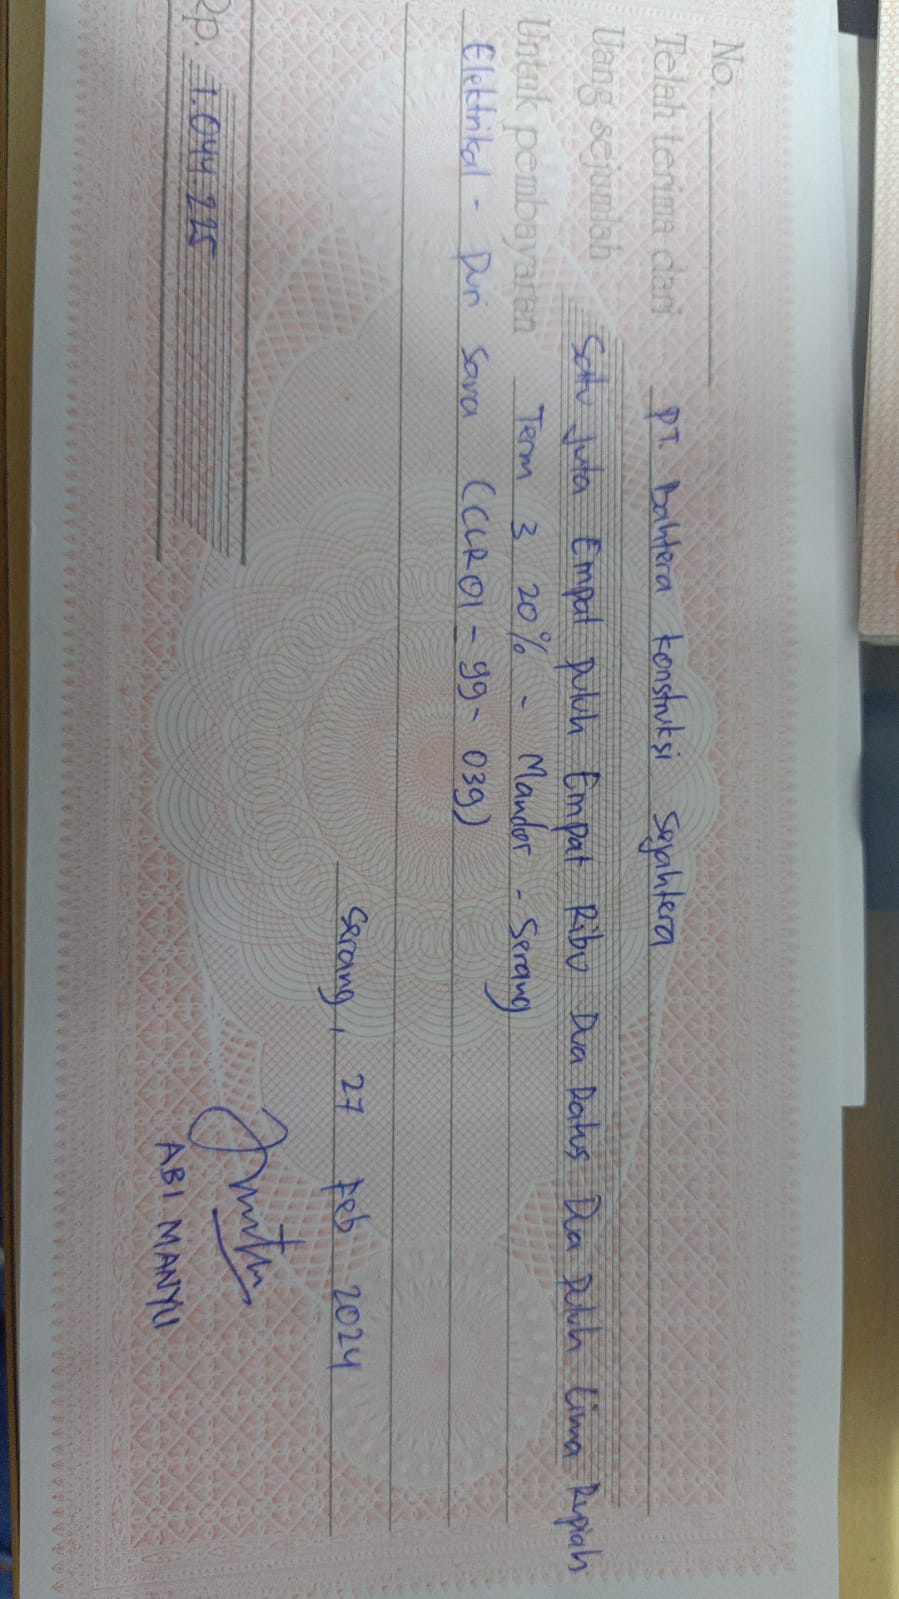 No.
Telah terima dari PT. Bahtera konstruksi Sejahtera
Uang sejumlah Satu Juta Empat puluh Empat Ribu Dua Ratus Dua Puluh Lima Rupiah
Untuk pembayaran Term 3 20% - Mandor - Serang
Elektrikal - Puri Sara (CCLR01-99-039)
Serang, 27 Feb 2024
Rp. 1.044.225
ABI MANYU